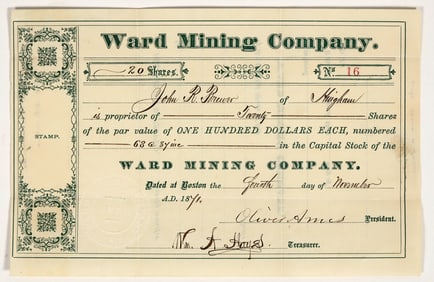 Ward Mining Company.
20 Shares. No 16
John R. Brewer of Hingham
is proprietor of Twenty Shares
of the par value of ONE HUNDRED DOLLARS EACH, numbered
in the Capital Stock of the
WARD MINING COMPANY.
Dated at Boston the fourth day of November
A.D. 1871.
Oliver Ames President.
Wm. A. Hayes Treasurer.
STAMP.